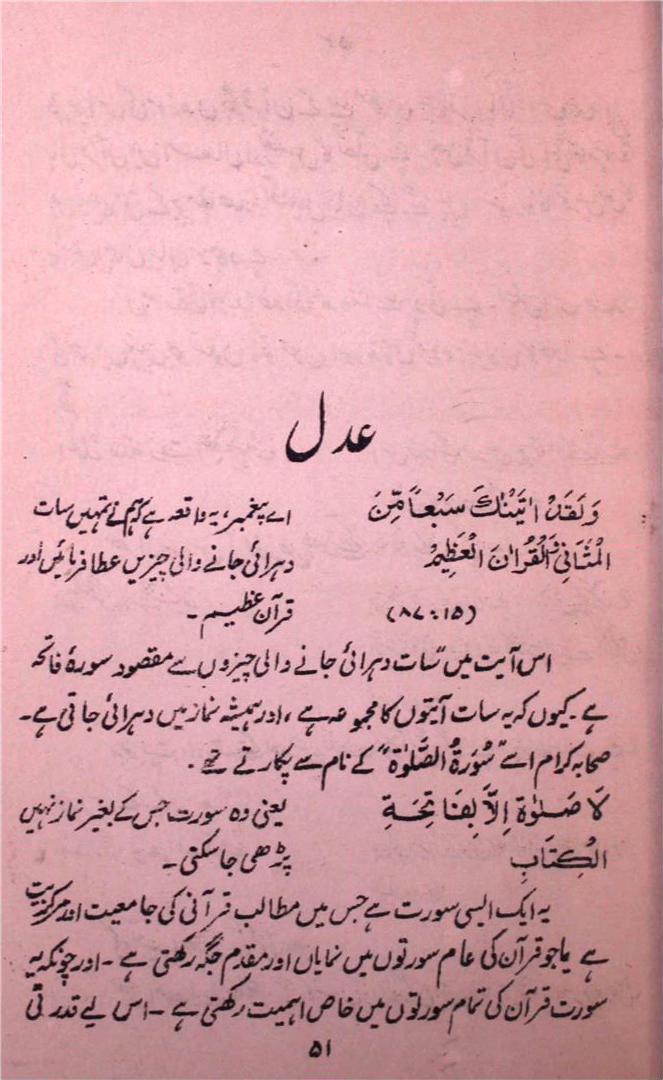 عدل
وَلَقَدْ اٰتَيْنٰكَ سَبْعاً مِّنَ اے پیغمبر، یہ واقعہ ہے کہ ہم نے تمہیں سات
الْمَثَانِیْ وَالْقُرْاٰنَ الْعَظِيْمَ دہرائی جانے والی چیزیں عطا فرمائیں اور
(۸۷:۱۵) قرآن عظیم ۔
اس آیت میں ”سات دہرائی جانے والی چیزوں سے مقصود سورۂ فاتحہ
ہے۔ کیوں کہ یہ سات آیتوں کا مجموعہ ہے، اور ہمیشہ نماز میں دہرائی جاتی ہے۔
صحابہ کرام اسے ”سُوْرَۃُ الصَّلٰوۃ“ کے نام سے پکارتے تھے۔
لَا صَلٰوۃَ اِلَّا بِفَاتِحَۃِ یعنی وہ سورت جس کے بغیر نماز نہیں
الْكِتَابِ پڑھی جا سکتی۔
یہ ایک ایسی سورت ہے جس میں مطالب قرآنی کی جامعیت اور مرکزیت
ہے یا جو قرآن کی عام سورتوں میں نمایاں اور مقدم جگہ رکھتی ہے۔ اور چونکہ یہ
سورت قرآن کی تمام سورتوں میں خاص اہمیت رکھتی ہے۔ اس لیے قدرتی
۵۱